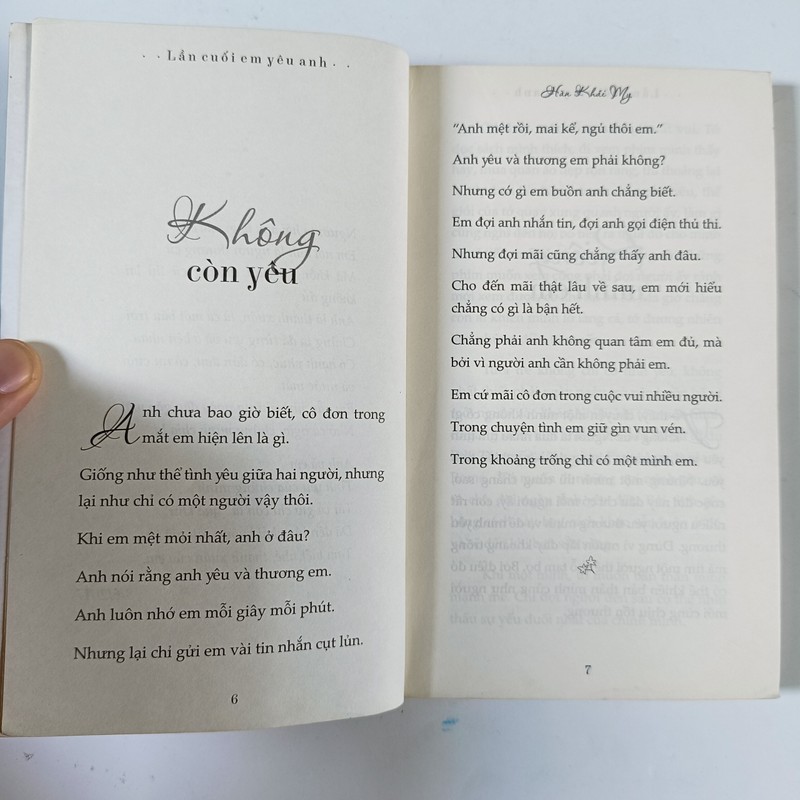 . . Lần cuối em yêu anh . .
Không
còn yêu
Anh chưa bao giờ biết, cô đơn trong
mắt em hiện lên là gì.
Giống như thể tình yêu giữa hai người, nhưng
lại như chỉ có một người vậy thôi.
Khi em mệt mỏi nhất, anh ở đâu?
Anh nói rằng anh yêu và thương em.
Anh luôn nhớ em mỗi giây mỗi phút.
Nhưng lại chỉ gửi em vài tin nhắn cụt lủn.
6
Hàn Khải My
“Anh mệt rồi, mai kể, ngủ thôi em.”
Anh yêu và thương em phải không?
Nhưng cớ gì em buồn anh chẳng biết.
Em đợi anh nhắn tin, đợi anh gọi điện thủ thỉ.
Nhưng đợi mãi cũng chẳng thấy anh đâu.
Cho đến mãi thật lâu về sau, em mới hiểu
chẳng có gì là bận hết.
Chẳng phải anh không quan tâm em đủ, mà
bởi vì người anh cần không phải em.
Em cứ mãi cô đơn trong cuộc vui nhiều người.
Trong chuyện tình em giữ gìn vun vén.
Trong khoảng trống chỉ có một mình em.
7